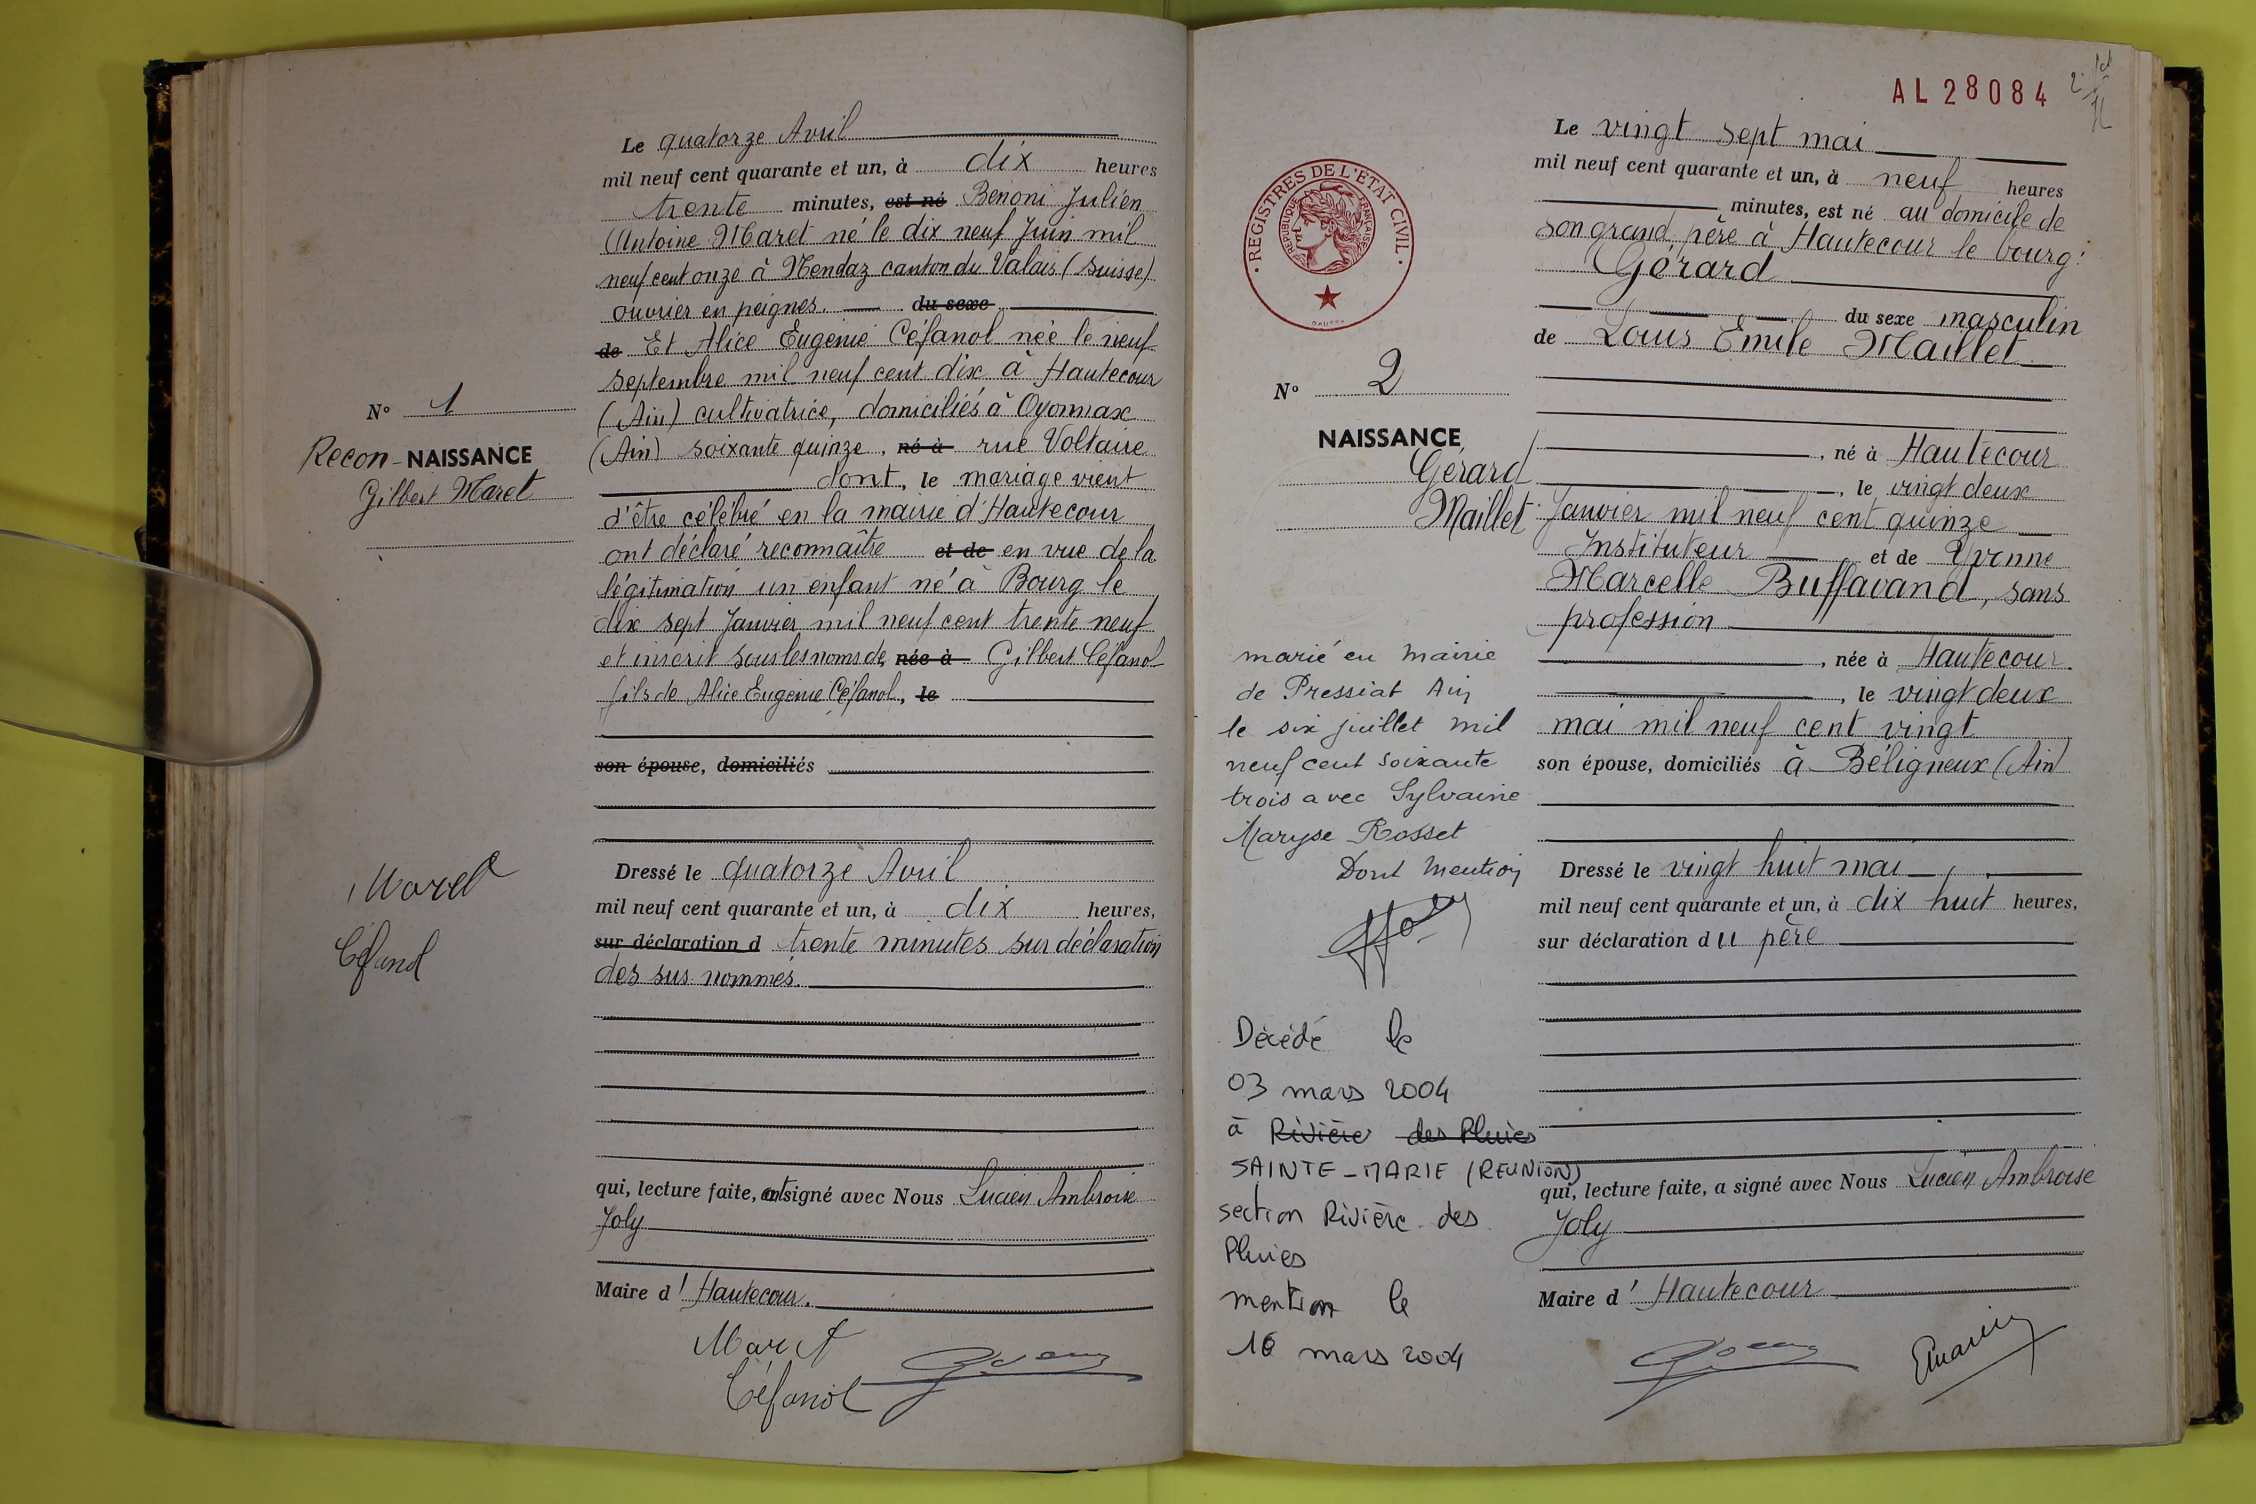 Le quatorze Avril
mil neuf cent quarante et un, à dix heures
trente minutes, est né Benoni Julien
Antoine Maret né le dix neuf Juin mil
neuf cent onze à Nendaz canton du Valais (Suisse)
ouvrier en peignes. du sexe
de Et Alice Eugénie Céfanol née le neuf
septembre mil neuf cent dix à Hautecour
(Ain) cultivatrice, domiciliés à Oyonnax
(Ain) soixante quinze, né à rue Voltaire
dont, le mariage vient
d'être célébré en la mairie d'Hautecour
ont déclaré reconnaître et de en vue de la
légitimation un enfant né à Bourg le
dix sept Janvier mil neuf cent trente neuf
et inscrit sous les noms de née à Gilbert Céfanol
fils de Alice Eugénie Céfanol, le
son épouse, domiciliés
Nº 1
Recon-NAISSANCE
Gilbert Maret
Maret
Céfanol
Dressé le quatorze Avril
mil neuf cent quarante et un, à dix heures,
sur déclaration d trente minutes sur déclaration
des sus nommés.
qui, lecture faite, ont signé avec Nous Lucien Ambroise
Joly
Maire d'Hautecour.
Maret
Céfanol
AL 28084
REGISTRES DE L'ÉTAT CIVIL
RÉPUBLIQUE FRANÇAISE
Le vingt sept mai
mil neuf cent quarante et un, à neuf heures
minutes, est né au domicile de
son grand père à Hautecour le bourg:
Gérard
du sexe masculin
de Louis Émile Maillet
Nº 2
NAISSANCE
Gérard
Maillet
, né à Hautecour
, le vingt deux
Janvier mil neuf cent quinze
Instituteur et de Yvonne
Marcelle Buffavand, sans
profession
, née à Hautecour.
, le vingt deux
mai mil neuf cent vingt
son épouse, domiciliés à Béligneux (Ain)
marié en mairie
de Pressiat Ain
le six juillet mil
neuf cent soixante
trois avec Sylvaine
Maryse Rosset
Dont Mention
Dressé le vingt huit mai
mil neuf cent quarante et un, à dix huit heures,
sur déclaration du père
Décédé le
03 mars 2004
à Rivière des Pluies
SAINTE-MARIE (REUNION)
section Rivière des
Pluies
mention le
16 mars 2004
qui, lecture faite, a signé avec Nous Lucien Ambroise
Joly
Maire d'Hautecour